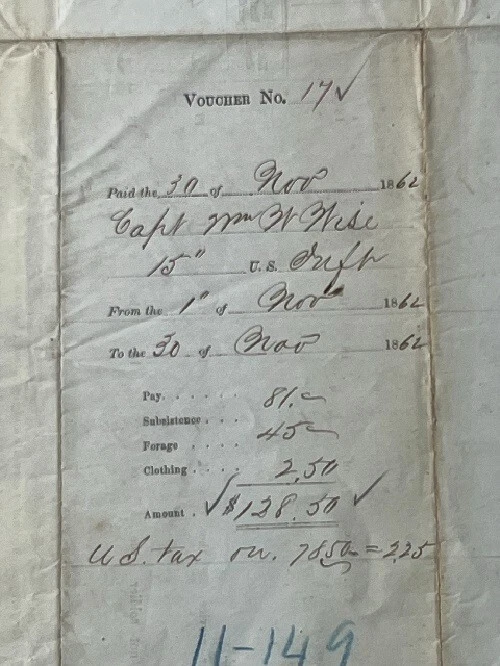 VOUCHER NO. 17✓
Paid the 30 of Nov 1862
Capt Wm W Wise
15" U.S. Inft
From the 1" of Nov 1862
To the 30 of Nov 1862
Pay. . . . . . 81.
Subsistence . . . 45
Forage . . . .
Clothing . . . . 2,50
Amount . ✓$128.50 ✓
U S. tax on. 7850 = 2,25
11-149